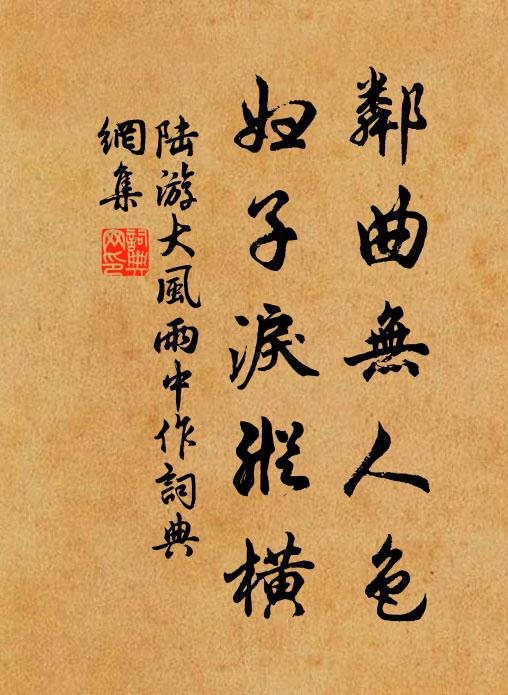 鄰曲無人色
婦子淚縱橫
陸游大風雨中作詞典
網集
詞典
网印